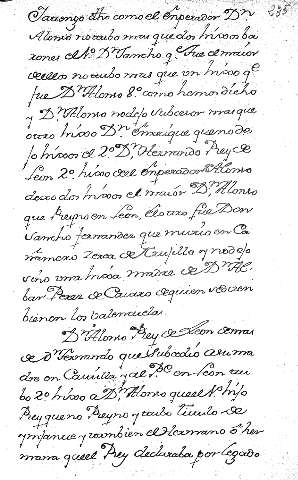 285
Ya tengo dho como el Enperador Dn
Alonso no tubo mas que dos hixos ba
rones el Rl Dn Sancho q. fue el maior
de ellos no tubo mas que un hixo qe
fue Dn Alonso 8o como hemos dicho
y Dn Alonso no dejo subcesor mas que
otro hixo Dn Enrrique que no de
jo hixos el 2o Dn Hernando Rey de
Leon 2o hixo del Enperador Alonso
dexo dos hixos el maior Dn Alonso
que Reyno en Leon, el otro fue Don
Sancho fernandez que murio en Ca
ñamero zerca de truxillo y no dejo
sino una hixa madre de Dn Al
bar Perez de Castro de quien se vie
bienen los Valencuela.
Dn Alonso Rey de Leon demas
de Dn Fernando que Subcedio a su ma
dre en Castilla y al Pe en Leon tu
bo 2o hixo a Dn Alonso que el Rl hijo
Rey que no Reyno y tubo titulo de
ynfante y tambien el Hermano o her
mana que el Rey declaraba por legado